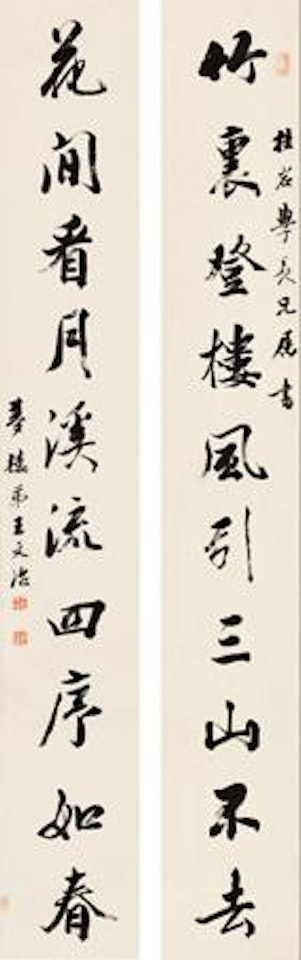 竹裏登樓風引三山不去
桂岩學長兄屬書
花間看月溪流四序如春
夢樓弟王文治